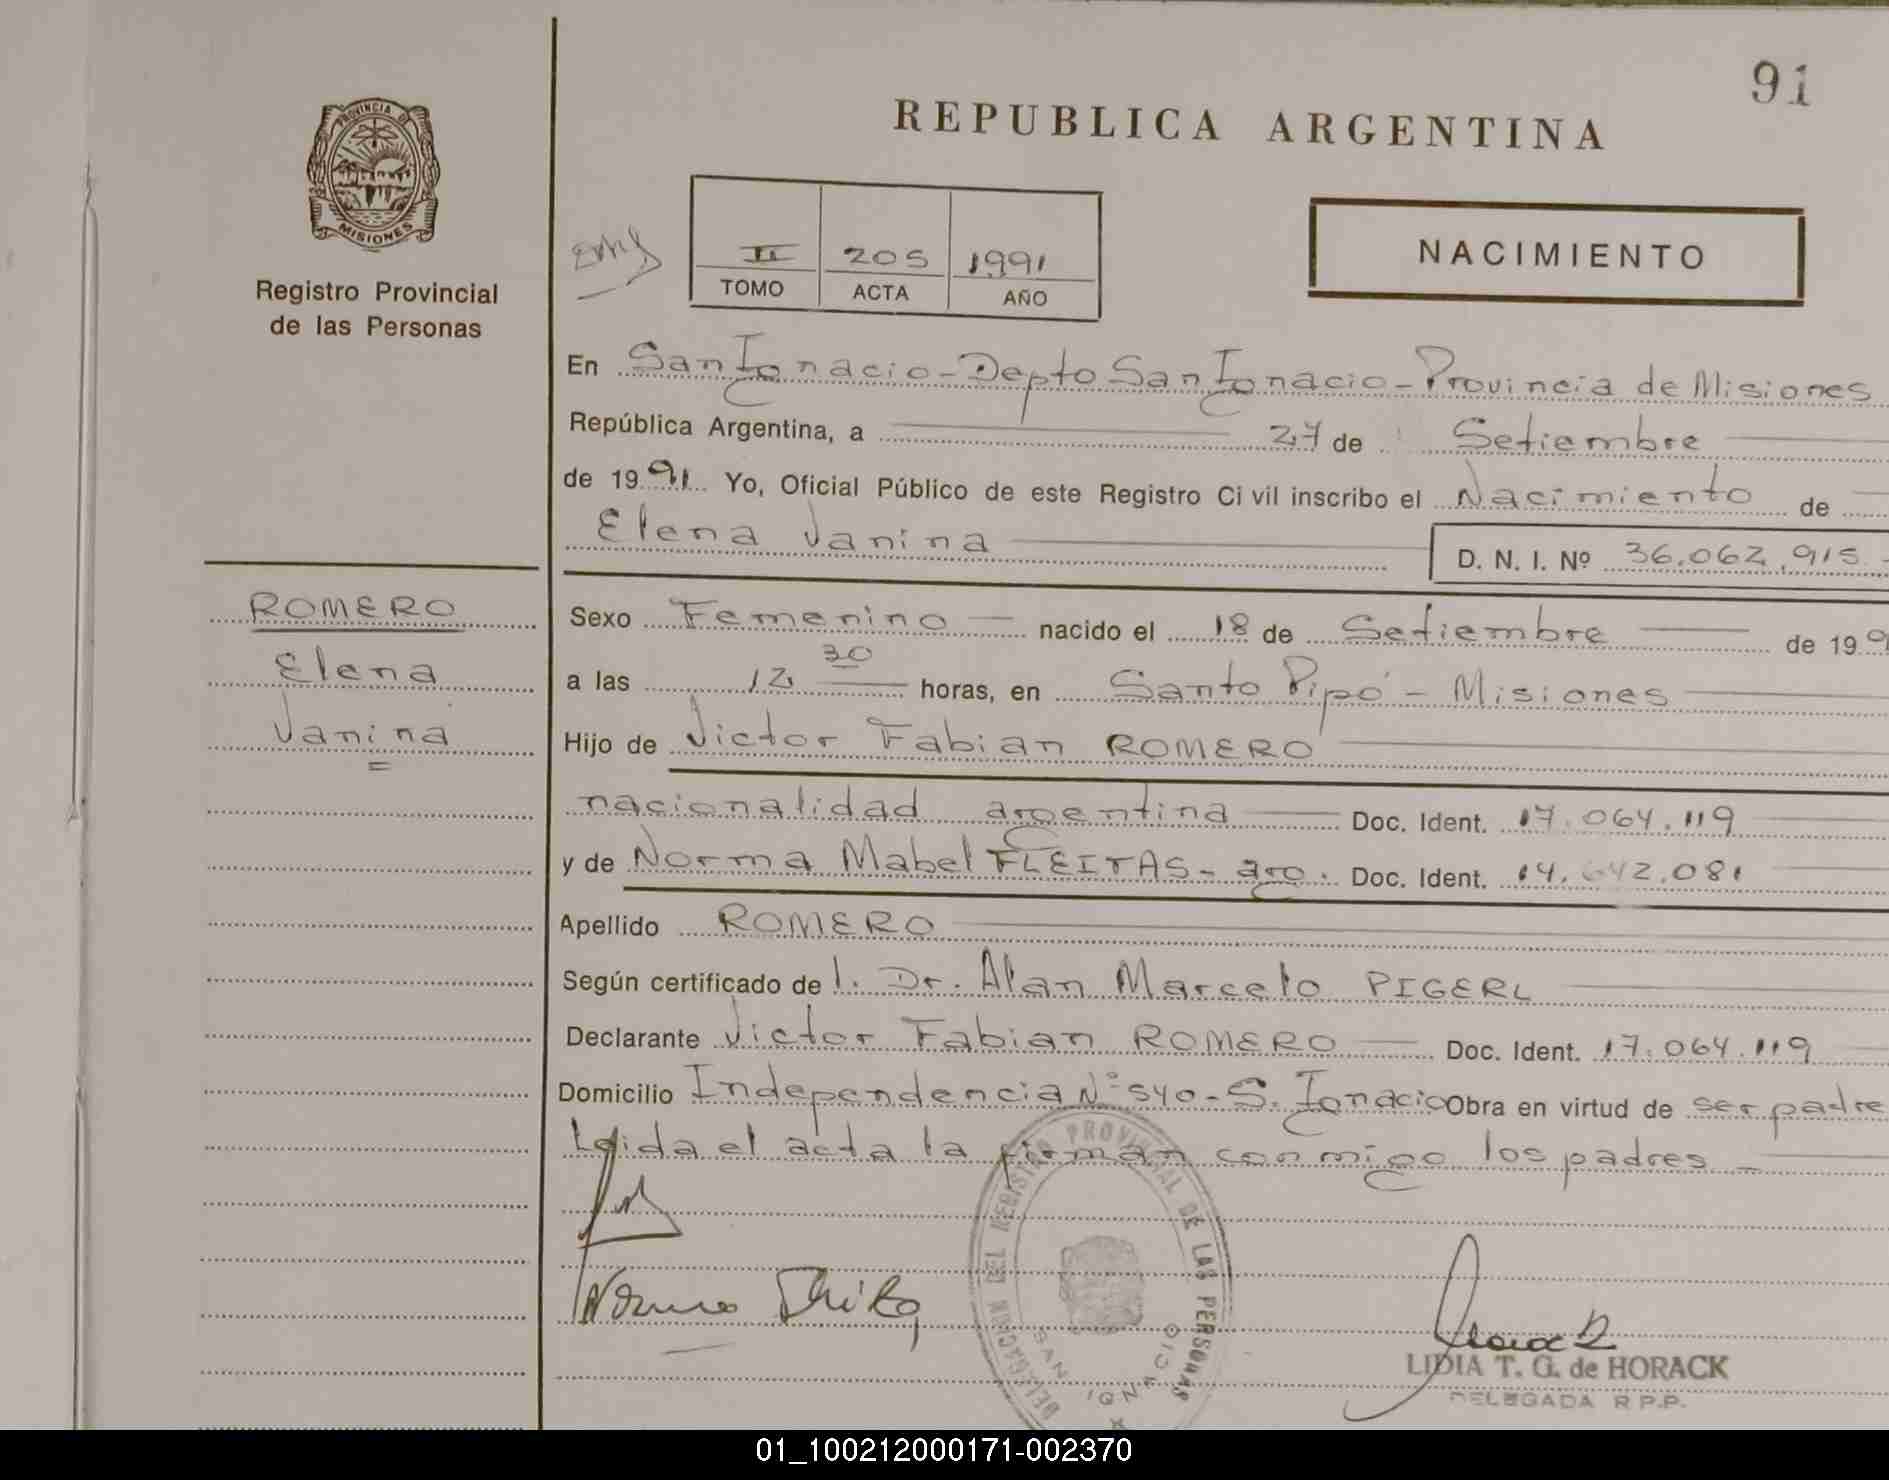 91
REPUBLICA ARGENTINA
PROVINCIA DE
MISIONES
Registro Provincial
de las Personas
II 205 1991
TOMO ACTA AÑO
NACIMIENTO
En San Ignacio - Depto San Ignacio - Provincia de Misiones
República Argentina, a 27 de Setiembre
de 1991 Yo, Oficial Público de este Registro Civil inscribo el Nacimiento de
Elena Janina D. N. I. Nº 36.062.915.-
ROMERO
Elena
Janina
Sexo Femenino nacido el 18 de Setiembre de 199
a las 12 30 horas, en Santo Pipó - Misiones
Hijo de Victor Fabian ROMERO
nacionalidad argentina Doc. Ident. 17.064.119
y de Norma Mabel FLEITAS - arg. Doc. Ident. 14.642.081
Apellido ROMERO
Según certificado de l. Dr. Alan Marcelo PIGERL
Declarante Victor Fabian ROMERO Doc. Ident. 17.064.119
Domicilio Independencia Nº 540 - S. Ignacio Obra en virtud de ser padre
Leida el acta la firman conmigo los padres -
DELEGACION DEL REGISTRO PROVINCIAL DE LAS PERSONAS
SAN IGNACIO
LIDIA T. G. de HORACK
DELEGADA R.P.P.
01_100212000171-002370